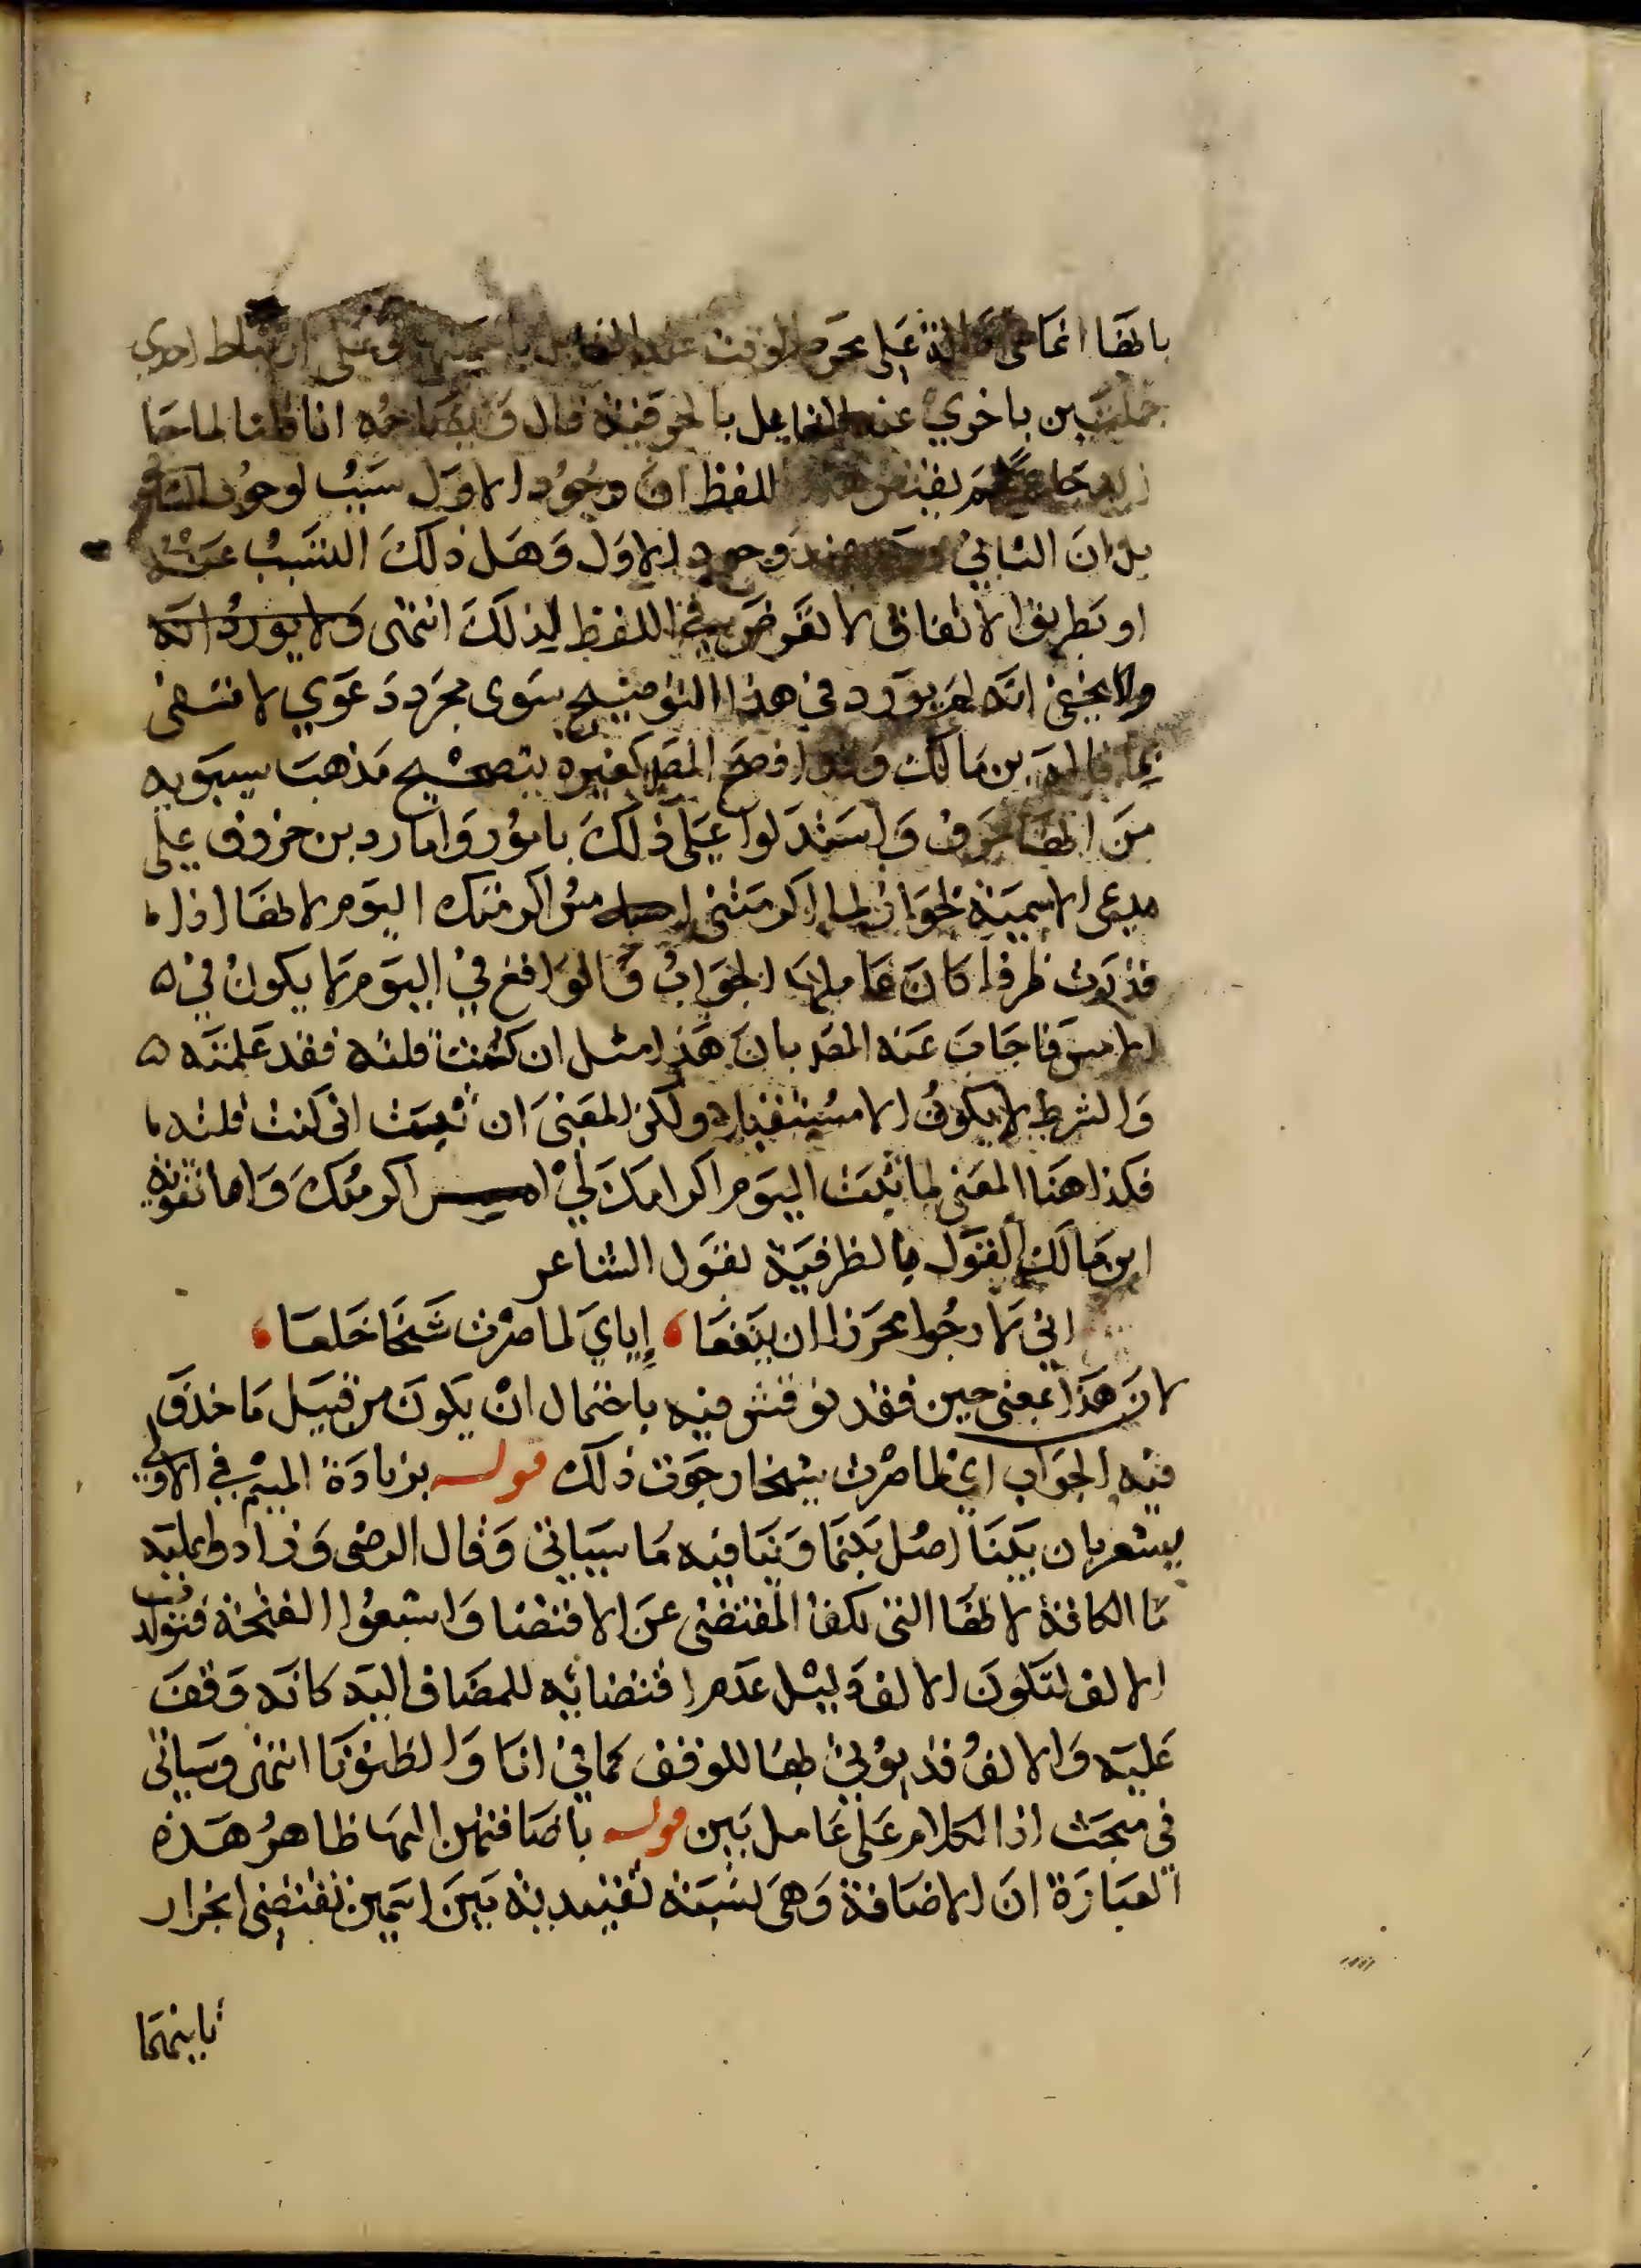 بانها انما هي دالة على مجرد الوقت عند القائل باسميتها وعلى ارتباط احدي
جملتين باخري عند القائل بالحرفية قال وايضاحه انا قلنا لما جا
زيد جا عمرو لم يقتض هذا اللفظ ان وجود الاول سبب لوجود الثاني
بل ان الثاني وجد عند وجود الاول وهل ذلك التسبب عنه
او بطريق الاتفاق لا تعرض في اللفظ لذلك انتهى ولا يورد انه
ولا يخفى انه لم يورد في هذا التوضيح سوى مجرد دعوي لا تنتهض
بما قاله بن مالك وقد افصح المص كغيره بتصحيح مذهب سيبويه
من انها حرف واستدلوا على ذلك بامور واما رد بن خروف على
مدعي الاسمية بجواز لما اكرمتني امس اكرمتك اليوم لانها اذا
قدرت ظرفا كان عاملها الجواب والواقع في اليوم لا يكون في
الامس فاجاب عنه المص بان هذا مثل ان كنت قلته فقد علمته
والشرط لا يكون الا مستقبلا ولكن المعنى ان ثبت اني كنت قلته
فكذا هنا المعنى لما ثبت اليوم اكرامك لي امس اكرمتك واما تقوية
ابن مالك القول بالظرفية بقول الشاعر
اني لارجوا محرزا ان ينفعا ، إياي لما صرت شيخا خلعا ،
لان هذا بمعنى حين فقد نوقش فيه باحتمال ان يكون من قبيل ما حذف
فيه الجواب اي لما صرت شيخا رجوت ذلك قوله بزيادة الميم في الاولى
يشعر بان بينا اصل بينما وينافيه ما سياتي وقال الرضى وزادوا عليه
ما الكافة لانها التي تكف المقتضى عن الاقتضا واشبعوا الفتحة فتولدت
الالف لتكون الالف دليل عدم اقتضائه للمضاف اليه كانه وقف
عليه والالف قد يؤتى بها للوقف كما في انا والظنونا انتهى وسياتي
في مبحث اذا الكلام على عامل بين قوله باضافتهن اليها ظاهر هذه
العبارة ان الاضافة وهي نسبة تقييدية بين اسمين تقتضي انجرار
ثانيهما